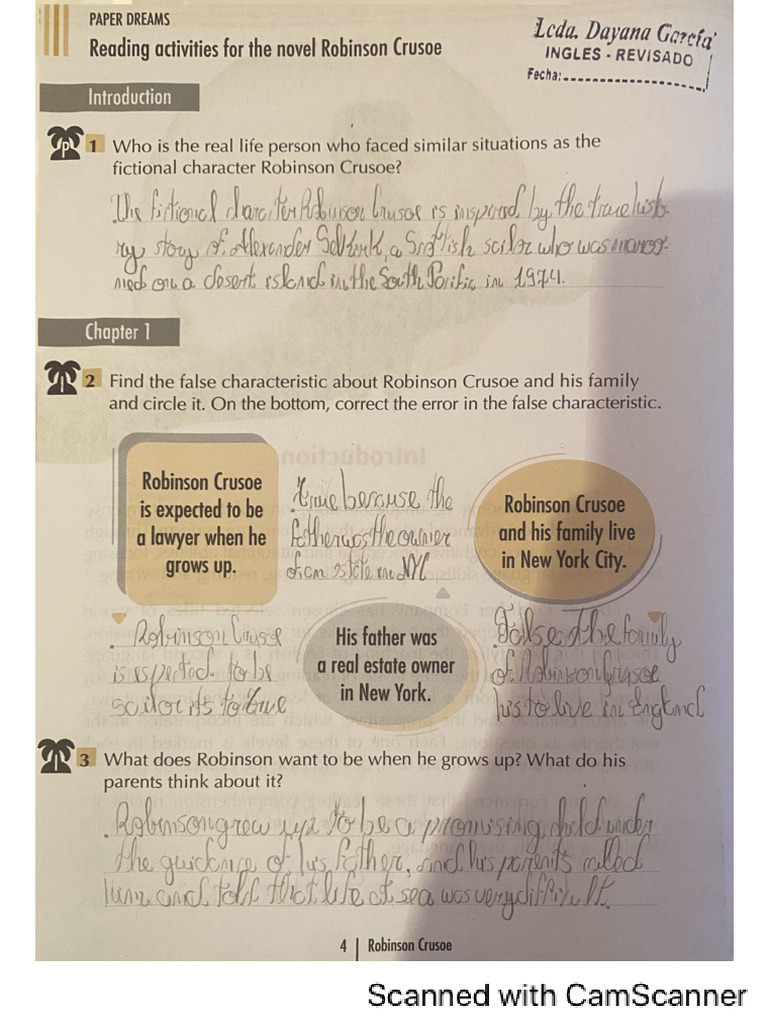 PAPER DREAMS
Reading activities for the novel Robinson Crusoe
Lcda. Dayana García
INGLES - REVISADO
Fecha:
Introduction
1 Who is the real life person who faced similar situations as the
fictional character Robinson Crusoe?
The fictional character Robinson Crusoe is inspired by the true histo-
ry story of Alexander Selkirk, a Scottish sailor who was maroo-
ned on a desert island in the South Pacific in 1974.
Chapter 1
2 Find the false characteristic about Robinson Crusoe and his family
and circle it. On the bottom, correct the error in the false characteristic.
Robinson Crusoe
is expected to be
a lawyer when he
grows up.
True because the
father was the owner
of an estate in NYC
Robinson Crusoe
and his family live
in New York City.
Robinson Crusoe
is expected to be
sailor its to true
His father was
a real estate owner
in New York.
False the family
of Robinson Crusoe
his to live in England
3 What does Robinson want to be when he grows up? What do his
parents think about it?
Robinson grew up to be a promising child under
the guidance of his father, and his parents called
him and told that life at sea was very difficult.
4 | Robinson Crusoe
Scanned with CamScanner